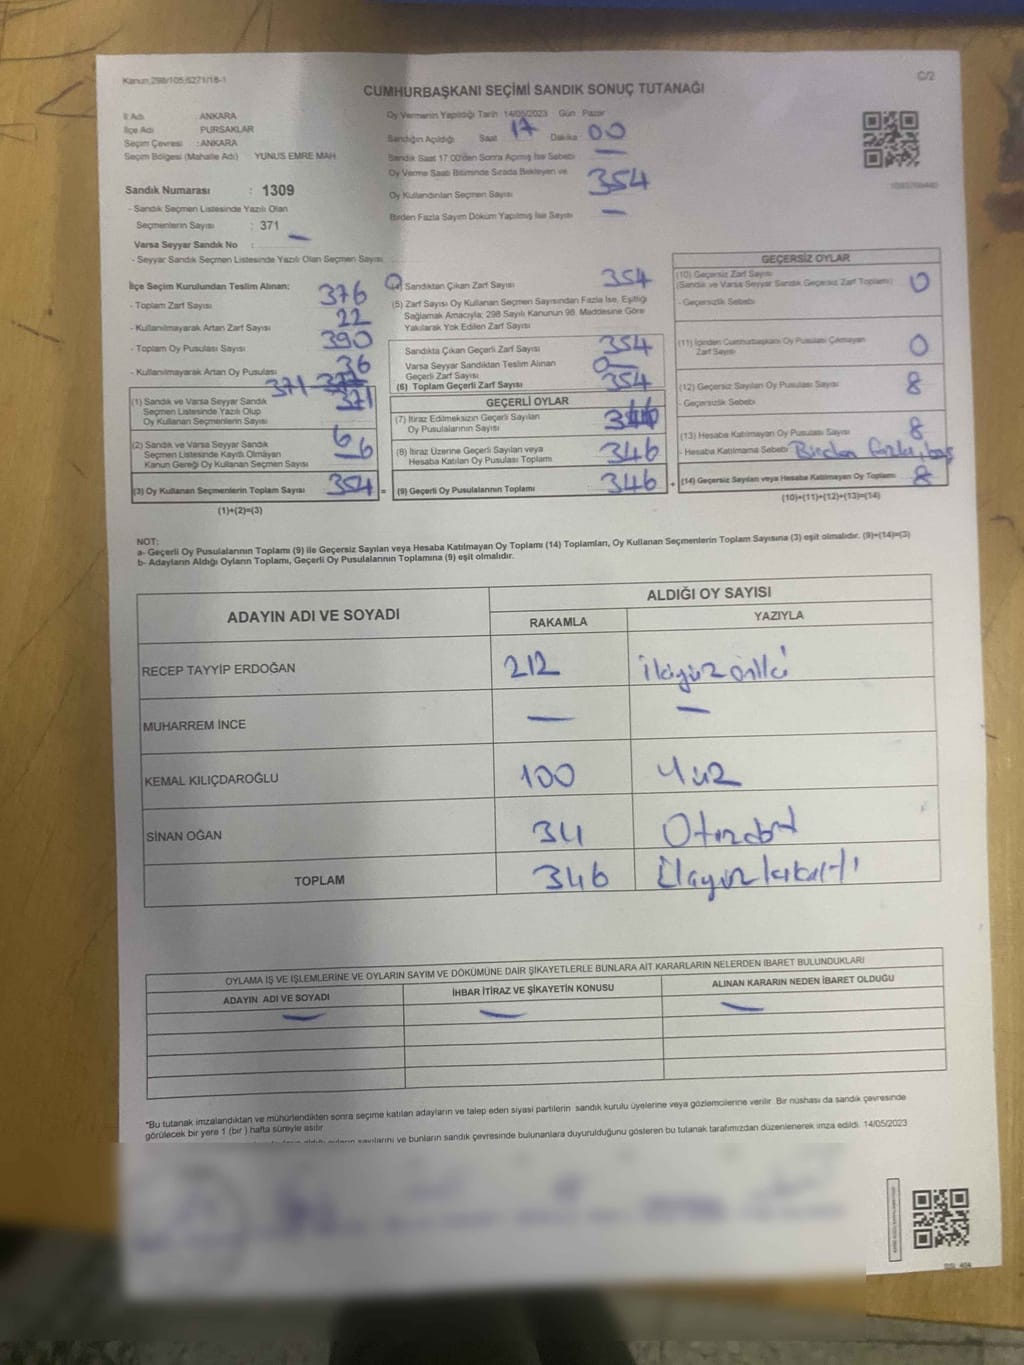 Kanun 298/105 6271/18-1
C/2
CUMHURBAŞKANI SEÇİMİ SANDIK SONUÇ TUTANAĞI
İl Adı : ANKARA
İlçe Adı PURSAKLAR
Seçim Çevresi : ANKARA
Seçim Bölgesi (Mahalle Adı) YUNUS EMRE MAH
Sandık Numarası : 1309
- Sandık Seçmen Listesinde Yazılı Olan
Seçmenlerin Sayısı : 371
Varsa Seyyar Sandık No : —
- Seyyar Sandık Seçmen Listesinde Yazılı Olan Seçmen Sayısı
Oy Vermenin Yapıldığı Tarih 14/05/2023 Gün Pazar
Sandığın Açıldığı Saat 17 Dakika 00
Sandık Saat 17:00'den Sonra Açılmış İse Sebebi —
Oy Verme Saati Bitiminde Sırada Bekleyen ve
Oy Kullandırılan Seçmen Sayısı 354
Birden Fazla Sayım Döküm Yapılmış İse Sayısı —
İlçe Seçim Kurulundan Teslim Alınan:
- Toplam Zarf Sayısı 376
- Kullanılmayarak Artan Zarf Sayısı 22
- Toplam Oy Pusulası Sayısı 390
- Kullanılmayarak Artan Oy Pusulası 36
371
(1) Sandık ve Varsa Seyyar Sandık
Seçmen Listesinde Yazılı Olup
Oy Kullanan Seçmenlerin Sayısı 371
(2) Sandık ve Varsa Seyyar Sandık
Seçmen Listesinde Kayıtlı Olmayan
Kanun Gereği Oy Kullanan Seçmen Sayısı 6
6
(3) Oy Kullanan Seçmenlerin Toplam Sayısı 354 =
(1)+(2)=(3)
(4) Sandıktan Çıkan Zarf Sayısı 354
(5) Zarf Sayısı Oy Kullanan Seçmen Sayısından Fazla İse, Eşitliği
Sağlamak Amacıyla; 298 Sayılı Kanunun 98. Maddesine Göre
Yakılarak Yok Edilen Zarf Sayısı
Sandıkta Çıkan Geçerli Zarf Sayısı 354
Varsa Seyyar Sandıktan Teslim Alınan
Geçerli Zarf Sayısı 0
(6) Toplam Geçerli Zarf Sayısı 354
GEÇERLİ OYLAR
(7) İtiraz Edilmeksizin Geçerli Sayılan
Oy Pusulalarının Sayısı 346
(8) İtiraz Üzerine Geçerli Sayılan veya
Hesaba Katılan Oy Pusulası Toplamı 346
(9) Geçerli Oy Pusulalarının Toplamı 346 +
GEÇERSİZ OYLAR
(10) Geçersiz Zarf Sayısı
(Sandık ve Varsa Seyyar Sandık Geçersiz Zarf Toplamı) 0
- Geçersizlik Sebebi
(11) İçinden Cumhurbaşkanı Oy Pusulası Çıkmayan
Zarf Sayısı 0
(12) Geçersiz Sayılan Oy Pusulası Sayısı 8
- Geçersizlik Sebebi
(13) Hesaba Katılmayan Oy Pusulası Sayısı 8
- Hesaba Katılmama Sebebi Birden fazla bas
(14) Geçersiz Sayılan veya Hesaba Katılmayan Oy Toplamı 8
(10)+(11)+(12)+(13)=(14)
NOT:
a- Geçerli Oy Pusulalarının Toplamı (9) ile Geçersiz Sayılan veya Hesaba Katılmayan Oy Toplamı (14) Toplamları, Oy Kullanan Seçmenlerin Toplam Sayısına (3) eşit olmalıdır. (9)+(14)=(3)
b- Adayların Aldığı Oyların Toplamı, Geçerli Oy Pusulalarının Toplamına (9) eşit olmalıdır.
ADAYIN ADI VE SOYADI
ALDIĞI OY SAYISI
RAKAMLA YAZIYLA
RECEP TAYYİP ERDOĞAN 212 İkiyüzoniki
MUHARREM İNCE — —
KEMAL KILIÇDAROĞLU 100 Yüz
SİNAN OĞAN 34 Otuzdört
TOPLAM 346
OYLAMA İŞ VE İŞLEMLERİNE VE OYLARIN SAYIM VE DÖKÜMÜNE DAİR ŞİKAYETLERLE BUNLARA AİT KARARLARIN NELERDEN İBARET BULUNDUKLARI
ADAYIN ADI VE SOYADI İHBAR İTİRAZ VE ŞİKAYETİN KONUSU ALINAN KARARIN NEDEN İBARET OLDUĞU
— — —
*Bu tutanak imzalandıktan ve mühürlendikten sonra seçime katılan adayların ve talep eden siyasi partilerin sandık kurulu üyelerine veya gözlemcilerine verilir. Bir nüshası da sandık çevresinde
görülecek bir yere 1 (bir) hafta süreyle asılır
sayılarını ve bunların sandık çevresinde bulunanlara duyurulduğunu gösteren bu tutanak tarafımızdan düzenlenerek imza edildi. 14/05/2023